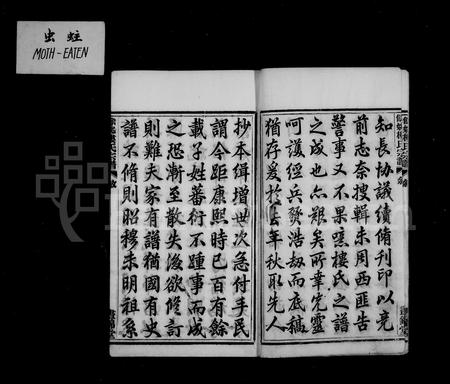 虫蛀
MOTH-EATEN
知長協議續脩刊印以竟
前志奈搜輯未周西匪告
警事又不果噫樓氏之譜
之成也亦艱矣所幸完靈
呵護經兵發浩劫而底稿
猶存爰於去年秋取先人
抄本緝增世次急付手民
謂今距康熙時已百有餘
載子姓蕃衍不踵事而成
之恐漸至散失後欲修訂
則難夫家有譜猶國有史
譜不脩則昭穆未明祖系